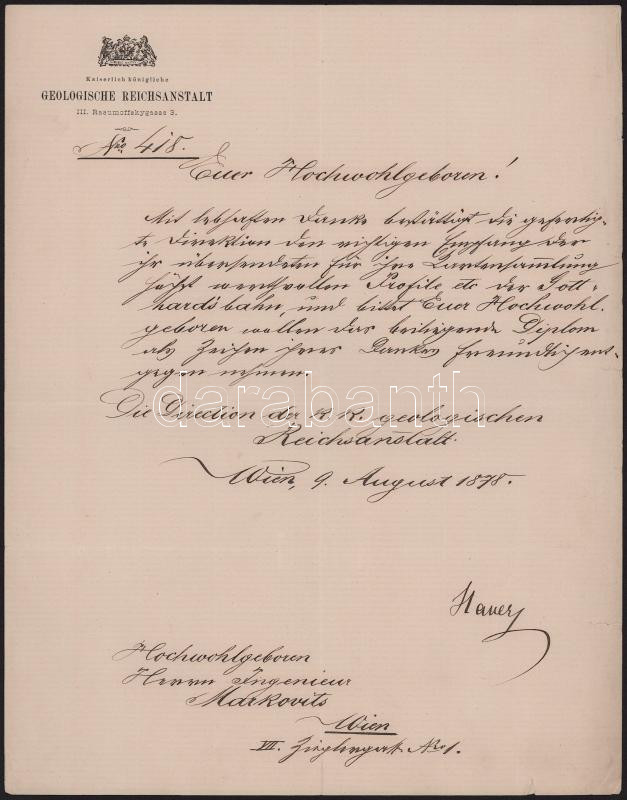 Kaiserlich königliche
GEOLOGISCHE REICHSANSTALT
III. Rasumoffskygasse 3.
No. 418.
Euer Hochwohlgeboren!
Mit lebhaften Danke bestättigt die gefertig-
te Direktion den richtigen Empfang der
ihr übersendeten für ihre Kartensammlung
höchst werthvollen Profile etc der Gott-
hardsbahn, und bittet Euer Hochwohl-
geboren wollen das beiliegende Diplom
als Zeichen ihres Dankes freundlich ent-
gegen nehmen.
darabanth
Die Direction der k. k. geologischen
Reichsanstalt.
Wien, 9. August 1878.
Hauer
Hochwohlgeboren
Herrn Ingenieur
Markovits
Wien
VII. Zieglergasse No 1.